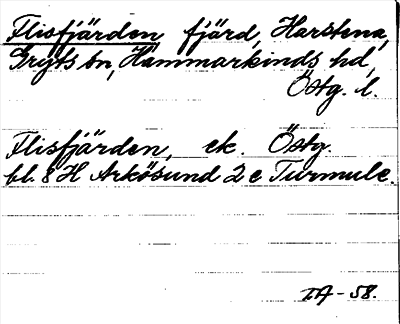 Flisfjärden fjärd, Harstena,
Gryts sn, Hammarkinds hd,
Östg. l.
Flisfjärden, ek. Östg.
bl. 8 H Arkösund 2 e Turmule.
IA-58.